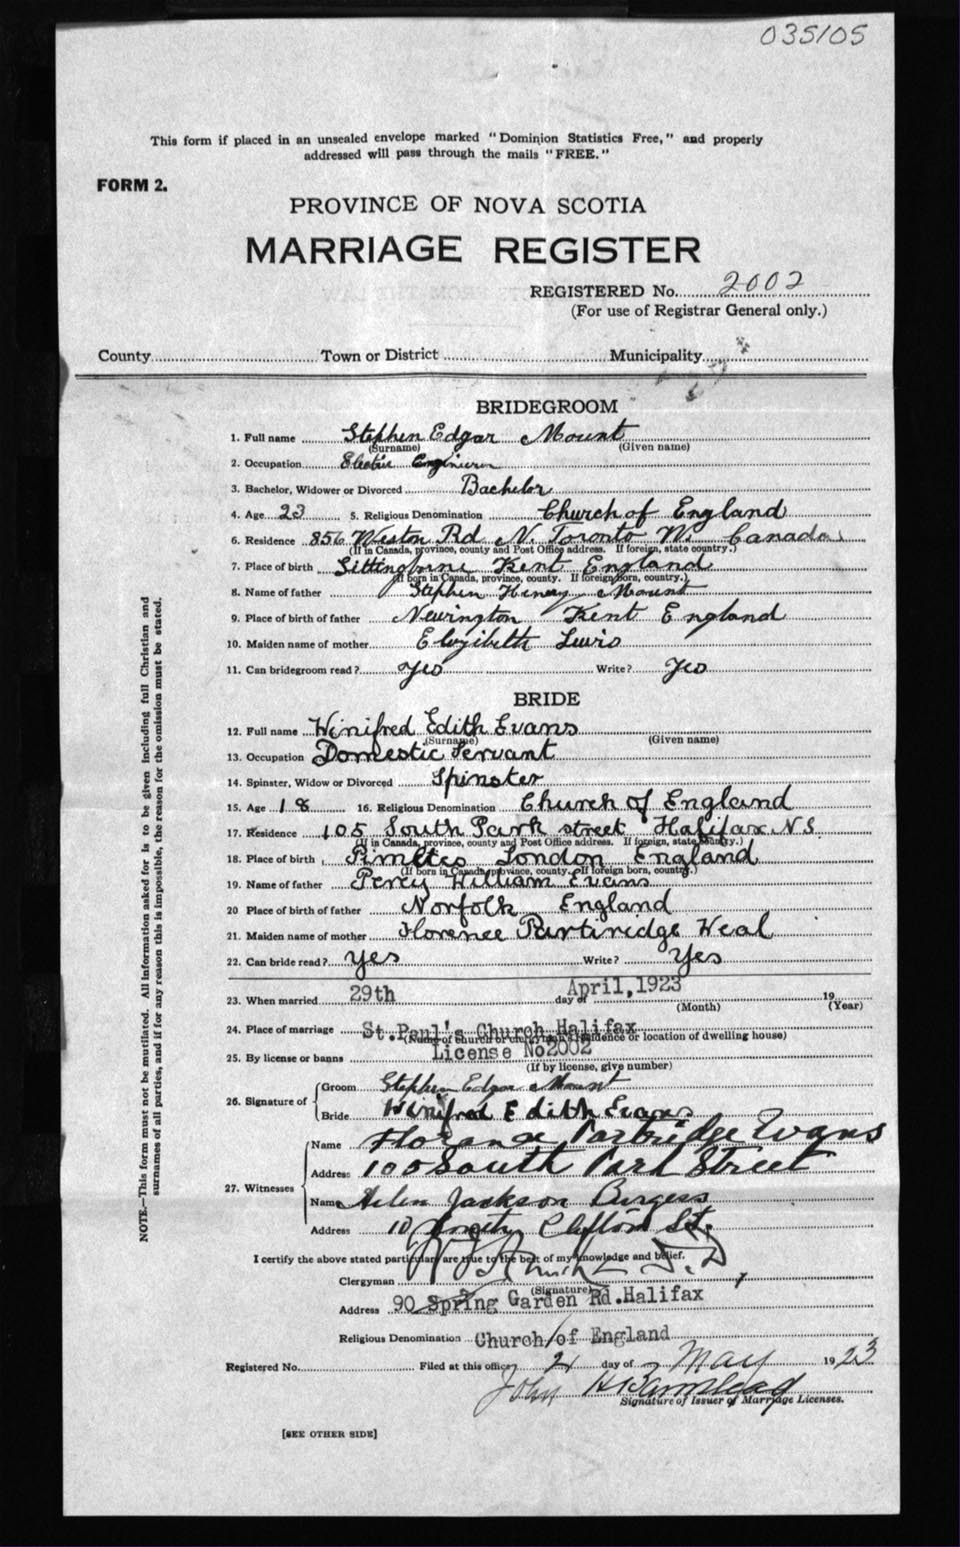 035105
This form if placed in an unsealed envelope marked "Dominion Statistics Free," and properly
addressed will pass through the mails "FREE."
FORM 2.
PROVINCE OF NOVA SCOTIA
MARRIAGE REGISTER
REGISTERED No. 2002
(For use of Registrar General only.)
County Town or District Municipality
BRIDEGROOM
1. Full name Stephen Edgar Mount
(Surname) (Given name)
2. Occupation Electric Engineer
3. Bachelor, Widower or Divorced Bachelor
4. Age 23 5. Religious Denomination Church of England
6. Residence 856 Weston Rd N. Toronto W. Canada
(If in Canada, province, county and Post Office address. If foreign, state country.)
7. Place of birth Sittingborne Kent England
(If born in Canada, province, county. If foreign born, country.)
8. Name of father Stephen Henry Mount
9. Place of birth of father Newington Kent England
10. Maiden name of mother Elizibeth Lewis
11. Can bridegroom read? Yes Write? Yes
BRIDE
12. Full name Winifred Edith Evans
(Surname) (Given name)
13. Occupation Domestic Servant
14. Spinster, Widow or Divorced Spinster
15. Age 18 16. Religious Denomination Church of England
17. Residence 105 South Park street Halifax N.S.
(If in Canada, province, county and Post Office address. If foreign, state country.)
18. Place of birth Pimltco London England
(If born in Canada, province, county. If foreign born, country.)
19. Name of father Percy William Evans
20 Place of birth of father Norfolk England
21. Maiden name of mother Florence Partiridge Weal
22. Can bride read? Yes Write? Yes
23. When married 29th day of April, 1923 19
(Month) (Year)
24. Place of marriage St. Paul's Church Halifax
(Name of church or clergyman's residence or location of dwelling house)
25. By license or banns License No2002
(If by license, give number)
26. Signature of
Groom Stephen Edgar Mount
Bride Winifred Edith Evans
27. Witnesses
Name Florance Partridge Evans
Address 105 South Park Street
Name Helen Jackson Burgess
Address 10 Clifton St.
I certify the above stated particulars are true to the best of my knowledge and belief.
Clergyman
(Signature)
Address 90 Spring Garden Rd. Halifax
Religious Denomination Church of England
Registered No. Filed at this office 2 day of May 1923
John
Signature of Issuer of Marriage Licenses.
[SEE OTHER SIDE]
NOTE.—This form must not be mutilated. All information asked for is to be given including full Christian and
surnames of all parties, and if for any reason this is impossible, the reason for the omission must be stated.